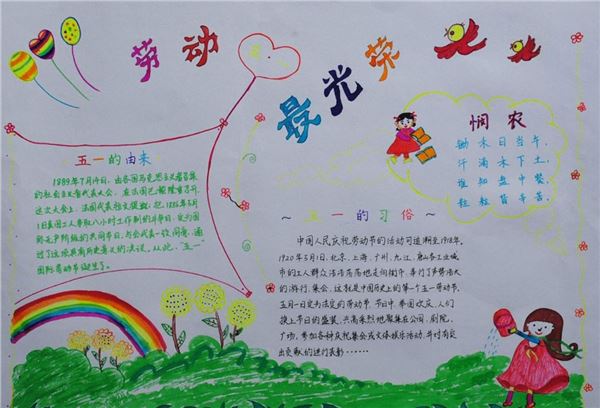 劳动
最光荣
五一的由来
1889年7月14日,由各国马克思主义者召集
的社会主义者代表大会,在法国巴黎隆重召开。
这次大会上,法国代表拉文提议:把1886年5月
1日美国工人争取八小时工作制的斗争日,定为国
际无产阶级的共同节日。与会代表一致同意,通
过了这项具有历史意义的决议。从此,“五一”
国际劳动节诞生了。
悯农
锄禾日当午,
汗滴禾下土。
谁知盘中餐,
粒粒皆辛苦。
~五一的习俗~
中国人民庆祝劳动节的活动可追溯至1918年。
1920年5月1日,北京、上海、广州、九江、唐山各工业城
市的工人群众浩浩荡荡地走向街市、举行了声势浩大
的游行、集会。这就是中国历史上的第一个五一劳动节。
五月一日定为法定的劳动节。节日中,举国欢庆,人们
换上节日的盛装,兴高采烈地聚集在公园、剧院、
广场,参加各种庆祝集会或文体娱乐活动,并对有突
出贡献的进行表彰……